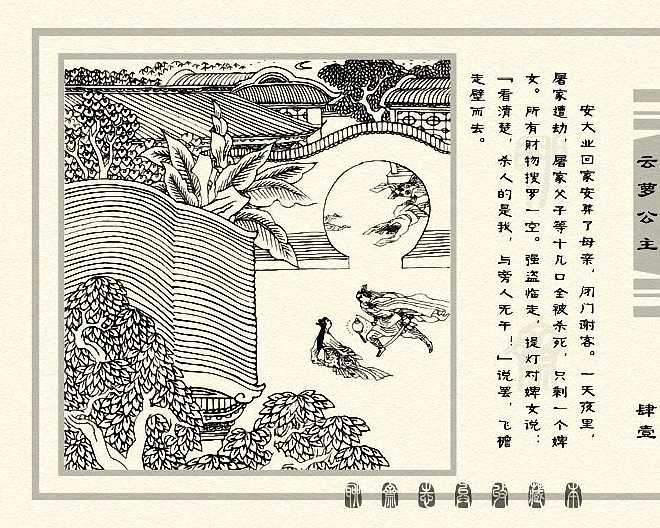 安大业回家安葬了母亲，闭门谢客。一天夜里，
屠家遭劫，屠家父子等十几口全被杀死，只剩一个婢
女。所有财物搜罗一空。强盗临走，提灯对婢女说：
「看清楚，杀人的是我，与旁人无干！」说罢，飞檐
走壁而去。
云萝公主
肆壹
聊斋志异收藏本